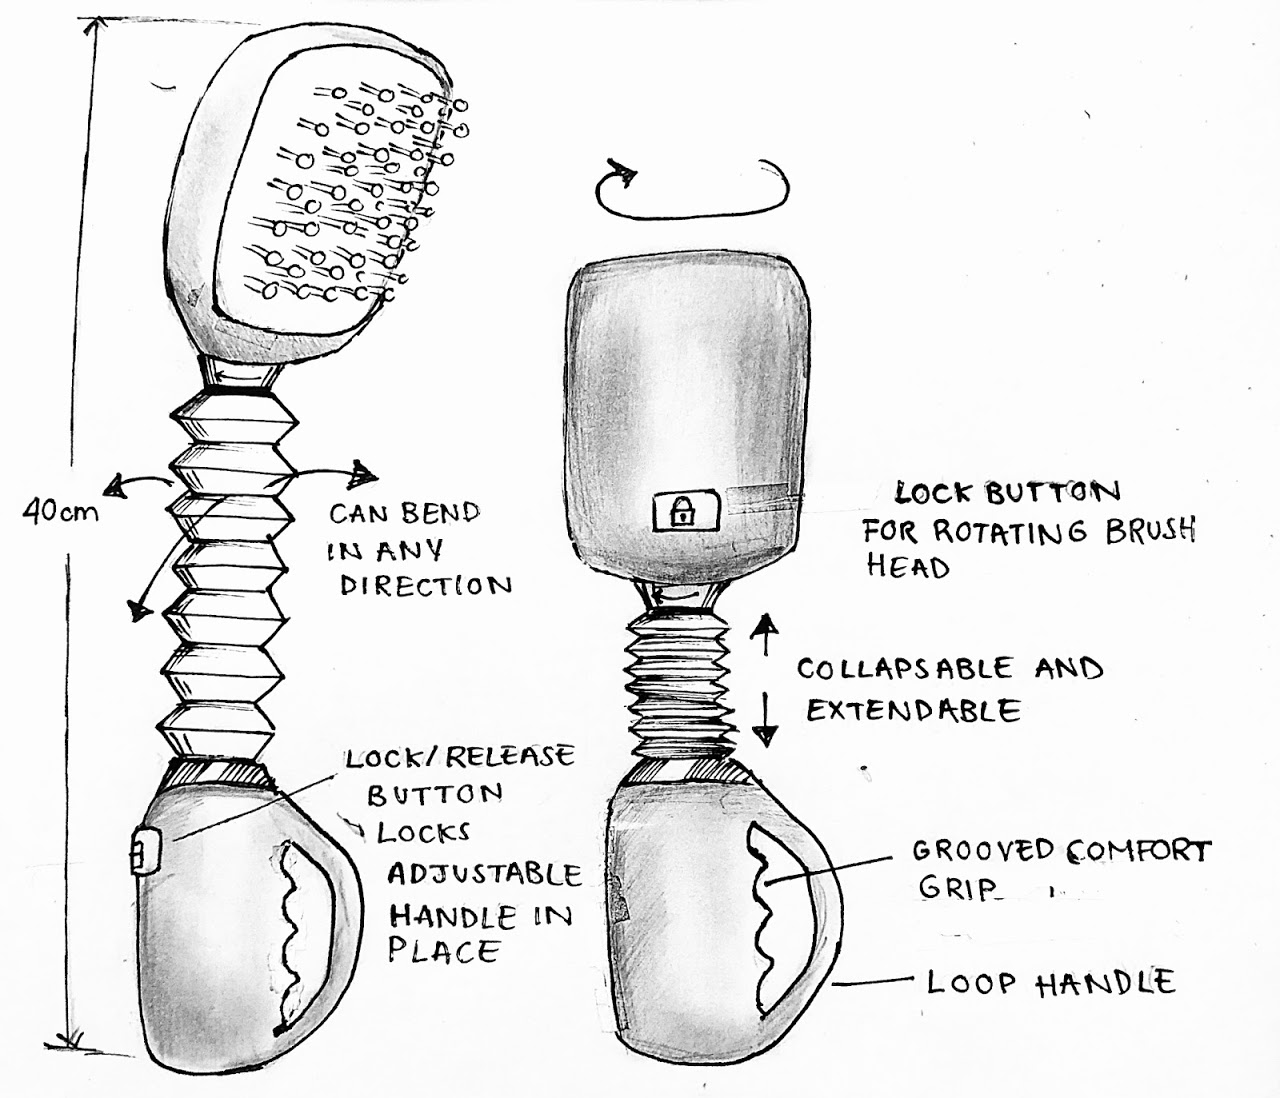 40cm
CAN BEND
IN ANY
DIRECTION
LOCK/RELEASE
BUTTON
LOCKS
ADJUSTABLE
HANDLE IN
PLACE
LOCK BUTTON
FOR ROTATING BRUSH
HEAD
COLLAPSABLE AND
EXTENDABLE
GROOVED COMFORT
GRIP
LOOP HANDLE